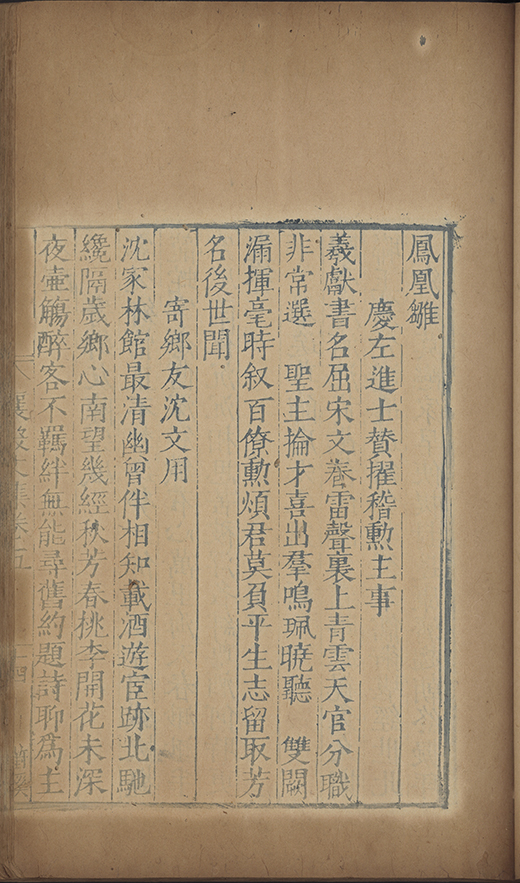 鳳凰雛
慶左進士贊擢稽勳主事
羲獻書名屈宋文春雷聲裏上青雲天官分職
非常選　聖主掄才喜出羣鳴珮曉聽　雙闕
漏揮毫時叙百僚勳煩君莫負平生志留取芳
名後世聞
寄鄉友沈文用
沈家林館最清幽曾伴相知載酒遊宦跡北馳
纔隔歲鄉心南望幾經秋芳春桃李開花未深
夜壷觴醉客不羈絆無能尋舊約題詩聊爲主
襄毅文集卷之五